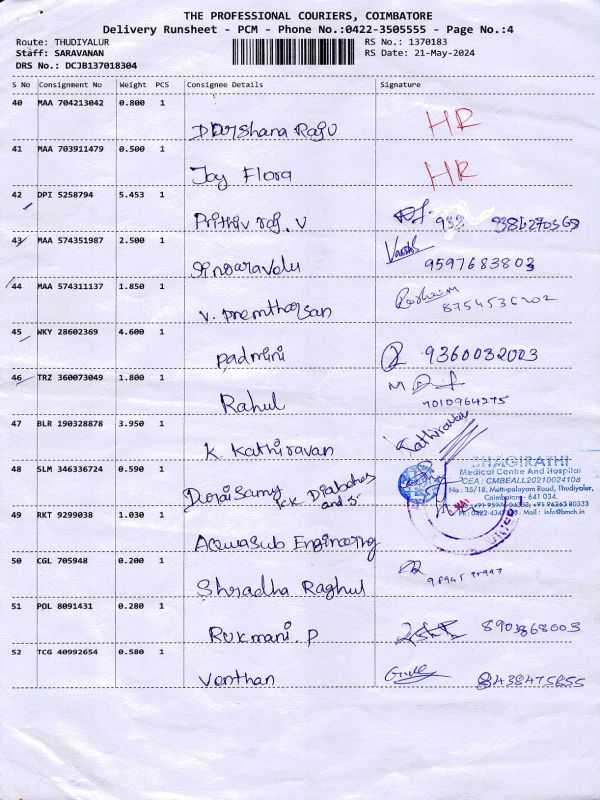 THE PROFESSIONAL COURIERS, COIMBATORE
Delivery Runsheet - PCM - Phone No.:0422-3505555 - Page No.:4
Route: THUDIYALUR RS No.: 1370183
Staff: SARAVANAN RS Date: 21-May-2024
DRS No.: DCJB137018304
S No Consignment No Weight PCS Consignee Details Signature
40 MAA 704213042 0.800 1
Darshana Raju HR
41 MAA 703911479 0.500 1
Joy Flora HR
42 DPI 5258794 5.453 1
Prithiv raj. V 938 9384270568
43 MAA 574351987 2.500 1
9597683803
44 MAA 574311137 1.850 1
V. Premthorsan 8754536202
45 WKY 28602369 4.600 1
Padmini 9360032003
46 TRZ 360073049 1.800 1
Rahul 7010964275
47 BLR 190328878 3.950 1
K. Kathiravan Kathiravan
48 SLM 346336724 0.590 1
Dorai Samy KK Diabetes and
BHAGIRATHI
Medical Centre And Hospital
CEA: CMBEALL20210024108
No: 35/18, Mettupalayam Road, Thudiyalur,
Coimbatore - 641 034.
+91 96263 80333
Mail: info@bmch.in
49 RKT 9299038 1.030 1
Acquasub Engineering
50 CGL 705948 0.200 1
Shradha Raghul
51 POL 8091431 0.280 1
Rukmani. P 8903868003
52 TCG 40992654 0.580 1
Venthan 8438475855